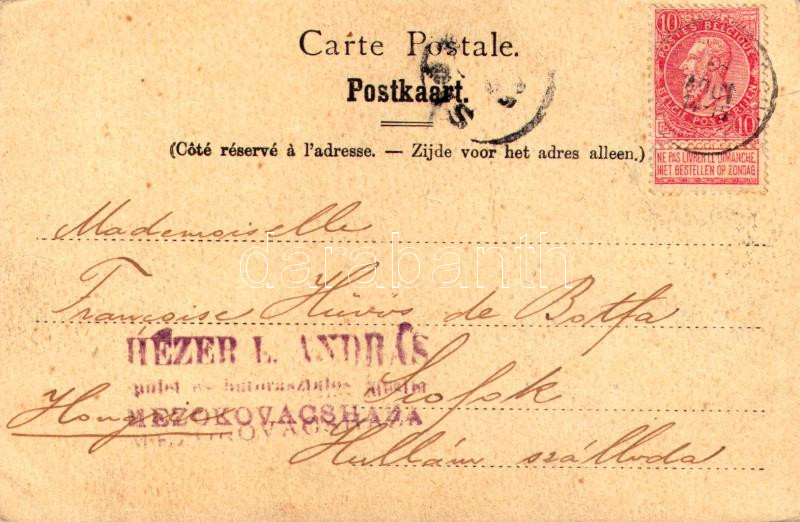 Carte Postale.
Postkaart.
(Côté réservé à l'adresse. — Zijde voor het adres alleen.)
10
POSTES BELGIQUE
BELGIË POSTERIJEN
10
NE PAS LIVRER LE DIMANCHE
NIET BESTELLEN OP ZONDAG
Mademoiselle
Françoise Hüvös de Botfa
HÉZER L. ANDRÁS
épület és bútorasztalos
Hongrie Siofok
MEZOKOVACSHAZA
Hullám szálloda
darabanth